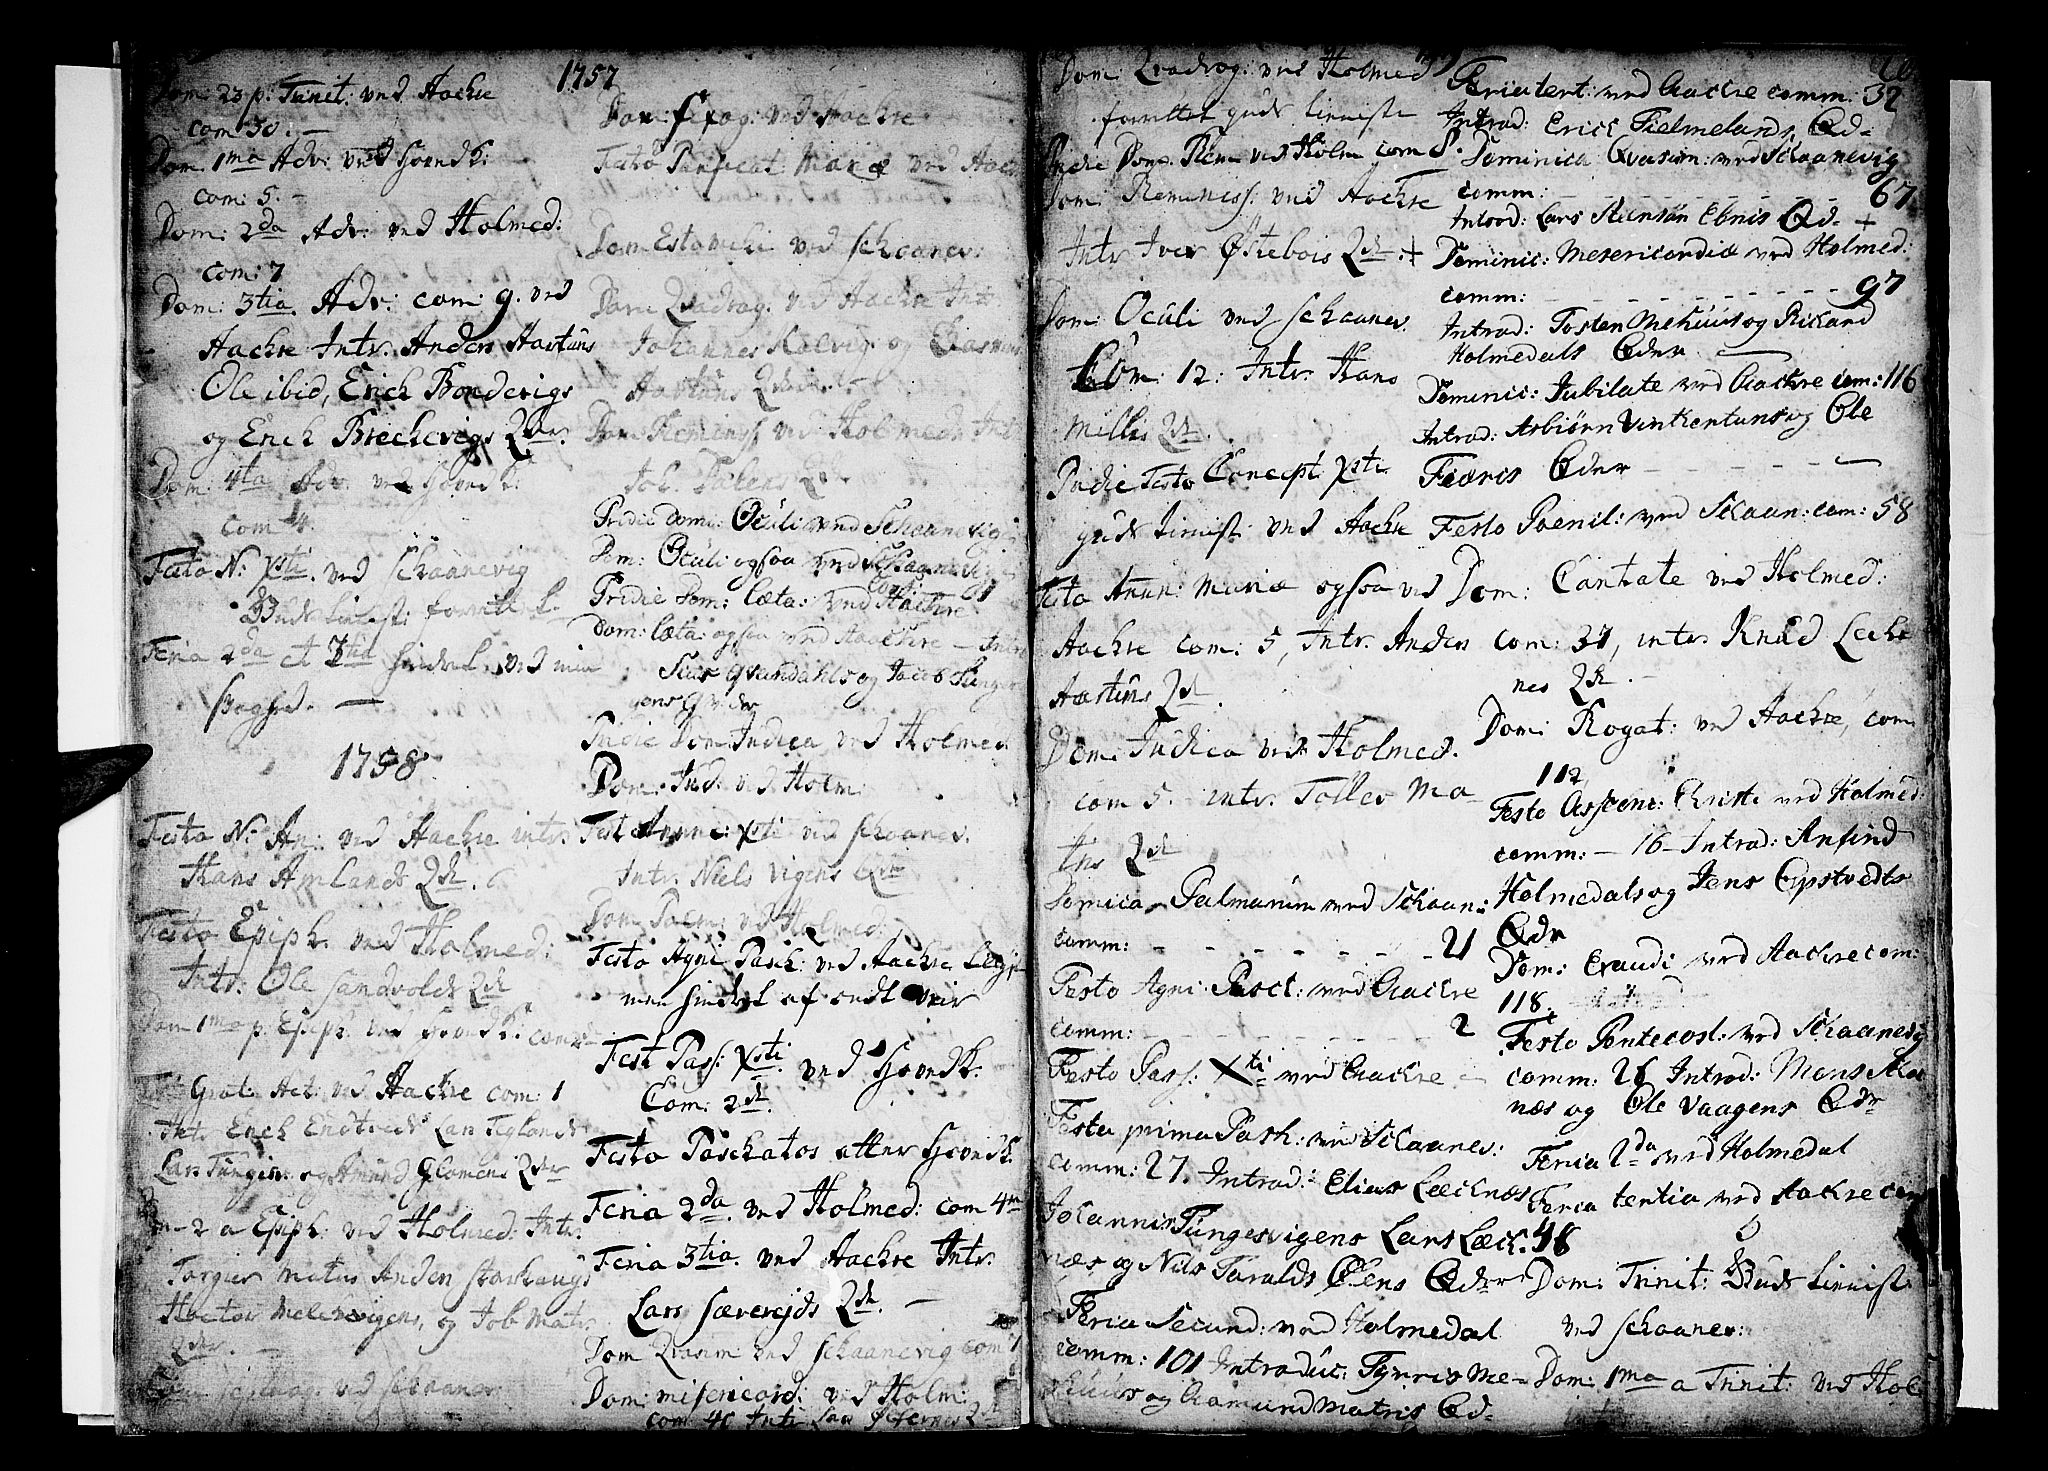 1757
Dom: 23 p: Trinit: ved Aachre
com: 30. –
Dom: 1ma Adv: ved Hovedk:
com: 5. –
Dom: 2da Adv: ved Holmed:
com: 7
Dom: 3tia Adv: com: 9. ved
Aachre Intr. Anders Aartuns
Ole ibid, Erich Bondevigs
og Erich Brechevigs Qder.
Dom: 4ta Adv: ved Hovedk:
com 4.
Festo N: Xsti. ved Schaanevig
Guds tienist: forrettet.
Feria 2da et 3tia hindret ved min
Svaghed. —
1758
Festo N: An: ved Aachre intr.
Hans Amlands Qde.
Festo Epiph. ved Holmed:
Intr: Ole Sandvolds Qde
Dom 1ma p: Epiph: ved Hovedk: com
Grat: Act: ved Aachre com: 1
Intr Erich Endreds Lars Teglands
Lars Tungesv. og Amund Glomens Qder
Dom 2 a Epiph: ved Holmed: Intr.
Torgier matres Anders Storhaugs
Hoctor Melevigens, og Job Matr.
Qder. –
ved Schaanev
Dom: Sexag: ved Aachre
Festo Purificat: Mariæ ved Aach
Dom Estomihi ved Schaanev:
Dom Qvadrag. ved Aachre Intr.
Johannes Kalvig og Rasmus
Aartuns Qder. –
Dom Reminisc: ved Holmed: Int
Joh. Qde
Pridie Domi: Oculi ved Schaanevig
Dom: Oculi ogsaa ved Schaanevig
Com: 61
Pridie Dom: Læta: ved Aachre
Dom: Læta: ogsaa ved Aachre – Intr
Siur Qvandahls og Jacob Tunges
vigens Qvder
Pridie Dom Judica ved Holmed
Dom: Jud: ved Holm:
Fest Annunc: Xsti ved Schaanev.
Intr. Niels Vigens Qde
Dom Palm: ved Holmed:
Festo Agni Pasch: ved Aachre
men hindret af ondt veir
Fest Pass: Xsti. ved Hovedk.
Com: 2de.
Festo Paschatos atter Hovedk.
Feria 2da ved Holmed: com 4
Feria 3tia. ved Aachre Intr.
Lars Særereids Qde. –
Dom Qvasim: ved Schaanevig com 7
Dom: misericord: ved Holm:
com: 46 Intr Lars Qde
Dom: Qvadrag: ved Holmed
forrettet guds tieniste
Pridie Dom: Rem: ved Holm com 8.
Dom: Reminiss: ved Aachre
Intr Iver Østebøis Qde. +
Dom: Oculi ved Schaanev.
Com: 12: Intr. Hans
Milles Qde.
Pridie Festo Concept: Xsti
guds tienist: ved Aachre
Festo Annun: Mariæ ogsaa ved
Aachre com: 5, Intr. Anders
Aartuns Qde.
Dom: Judica ved Holmed.
com 5. intr. Tolles Ma
trs Qde
Domica Palmarum ved Schaan:
comm: – – – – – – – 21
Festo Agni: Pasch: ved Aachre
comm: – – – – – – – 2
Festo Pass: Xti ved Aachre –
Festa prima Pash: ved Schaanev:
comm: 27. Introd: Elias Lechnæs
Johannis Tungesvigens Lars Læch
næs og Nils Taralds Ølens Qder
Feria Secund: ved Holmedal
comm: 101 Introduc: Tynnis Me–
huus og Aamund Matris Qd–
Feria tert: ved Aachre comm: 32
Introd: Erich Fielmelands Qd–
Dominica Qvasim: ved Schaanevig
comm: – – – – – – – 67
Introd: Lars Steensøn Ebnis Qd– +
Dominic: Mesericordiæ ved Holmed:
comm: – – – – – – – 97
Introd: Tosten Mehuus og Rikard
Holmedals Qder –
Dominic: Jubilate ved Aachre com: 116
Introd: Asbiørn Vinkentuns og Ole
Fiæris Qder – – – – –
Festo Poenit: ved Schaan: com: 58
Dom: Cantate ved Holmed:
com: 37, intr. Knud Lech
nes Qde. –
Dom: Rogat: ved Aachre, com
112
Festo Asscens: Christi ved Holmed:
comm: – 16 – Introd: Anfind
Holmedals og Jens Opstvedts
Qdr
Dom: Exaudi ved Aachre com:
118.
Festo Pentecost: ved Schaanevig
comm: 26 Introd: Mons Aka
næs og Ole Vaagens Qdr
Feria 2da ved Holmedal
Feria tertia ved Aachre com
48
Dom: Trinit: Guds tienist
ved Schaanev:
Dom: 1ma a Trinit: ved Hol